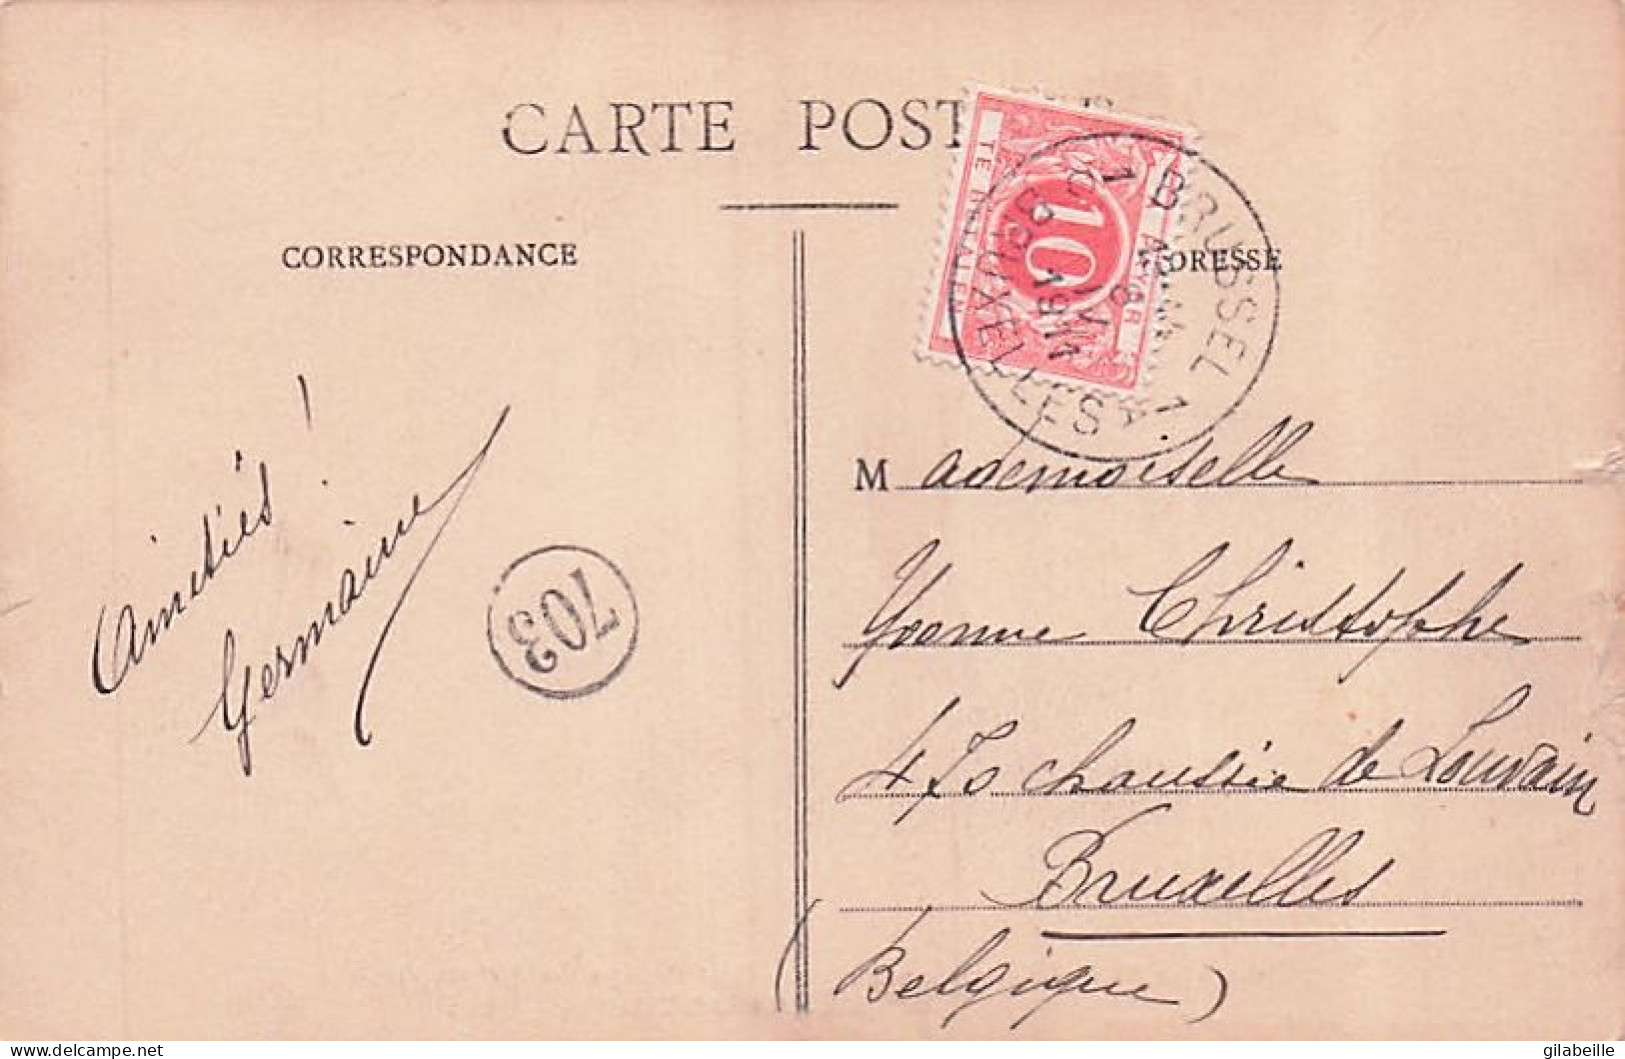 CARTE POST
CORRESPONDANCE
ADRESSE
10
TE BETALEN
A PAYER
1 BRUSSEL 1
BRUXELLES
8
IV
Amitiés !
Germaine
703
Mademoiselle
Yvonne Christophe
470 chaussée de Louvain
Bruxelles
(Belgique)
delcampe.net
gilabeille